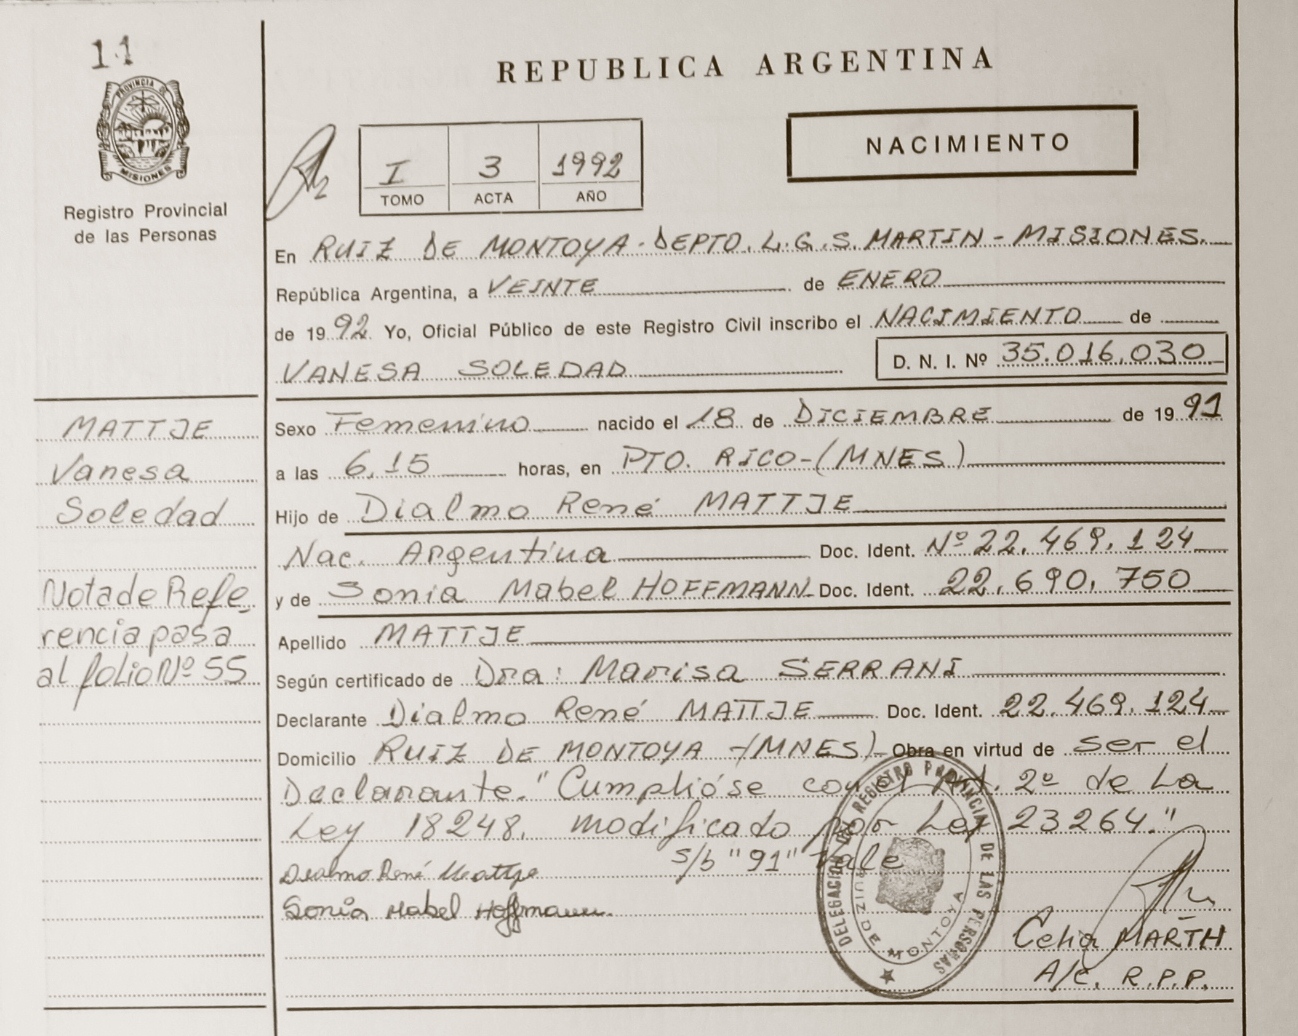 11
REPUBLICA ARGENTINA
PROVINCIA DE
MISIONES
Registro Provincial
de las Personas
I 3 1992
TOMO ACTA AÑO
NACIMIENTO
En RUIZ DE MONTOYA - DEPTO. L. G. S. MARTIN - MISIONES.
República Argentina, a VEINTE de ENERO
de 1992. Yo, Oficial Público de este Registro Civil inscribo el NACIMIENTO de
VANESA SOLEDAD D. N. I. Nº 35.016.030
MATTJE
Vanesa
Soledad
Nota de Refe-
rencia pasa
al folio Nº 55
Sexo Femenino nacido el 18 de DICIEMBRE de 1991
a las 6,15 horas, en PTO. RICO - (MNES)
Hijo de Dialmo René MATTJE
Nac. Argentina Doc. Ident. Nº 22.469.124
y de Sonia Mabel HOFFMANN Doc. Ident. 22.690.750
Apellido MATTJE
Según certificado de Dra: Marisa SERRANI
Declarante Dialmo René MATTJE Doc. Ident. 22.469.124
Domicilio RUIZ DE MONTOYA - (MNES) Obra en virtud de ser el
Declarante. "Cumplióse con el Art. 2º de La
Ley 18248. modificado por Ley 23264."
s/b "91" Vale
Dialmo René Mattje
Sonia Mabel Hoffmann
DELEGACION DEL REGISTRO PROVINCIAL DE LAS PERSONAS
RUIZ DE MONTOYA
Celia MARTH
A/C. R.P.P.